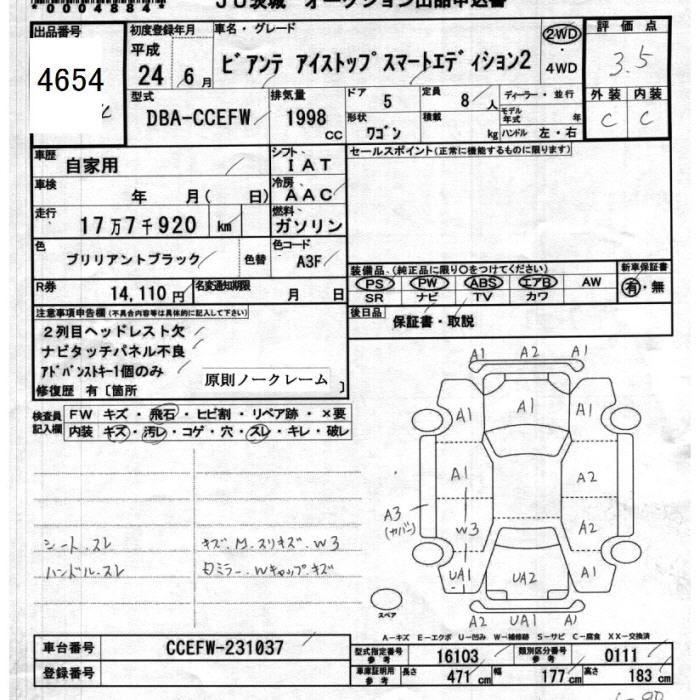 0004884
JU茨城 オークション出品申込書
出品番号 初度登録年月 車名・グレード 評価点
4654 平成 24 6月 ビアンテ アイストップスマートエディション2 2WD・4WD 3.5
型式 排気量 ドア 5 定員 8人 ディーラー・並行 外装 内装
DBA-CCEFW 1998cc 形状 ワゴン 積載 kg モデル年式 年 ハンドル 左・右 C C
車歴 自家用 シフト IAT セールスポイント(正常に機能するものに限ります)
車検 年 月( 日) 冷房 AAC
走行 17万7千920 km 燃料 ガソリン
色 ブリリアントブラック 色替 色コード A3F
装備品 (純正品に限り○をつけてください) 新車保証書
PS PW ABS エアB AW 有・無
SR ナビ TV カワ
R券 14,110円 名変通知期限 月 日
後日品 保証書・取説
注意事項申告欄(不具合内容等は具体的に記入して下さい)
2列目ヘッドレスト欠
ナビタッチパネル不良
アドバンストキー1個のみ
修復歴 有〔箇所 原則ノークレーム
検査員記入欄 FW キズ・飛石・ヒビ割・リペア跡・×要
内装 キズ・汚レ・コゲ・穴・スレ・キレ・破レ
シート.スレ キズ.M.スリキズ.W3
ハンドル.スレ ミラー.Wキャップキズ
A1 A2 A1
A1 A1 A1
A1 A2
A3 (カバー)
W3 A2
UA1 UA2 A1
スペア
A2 UA1 A1
A-キズ E-エクボ U-凹み W-補修跡 S-サビ C-腐食 XX-交換済
車台番号 CCEFW-231037 型式指定番号 参考 16103 類別区分番号 参考 0111
登録番号 車庫証明用 参考 長さ 471cm 幅 177cm 高さ 183cm